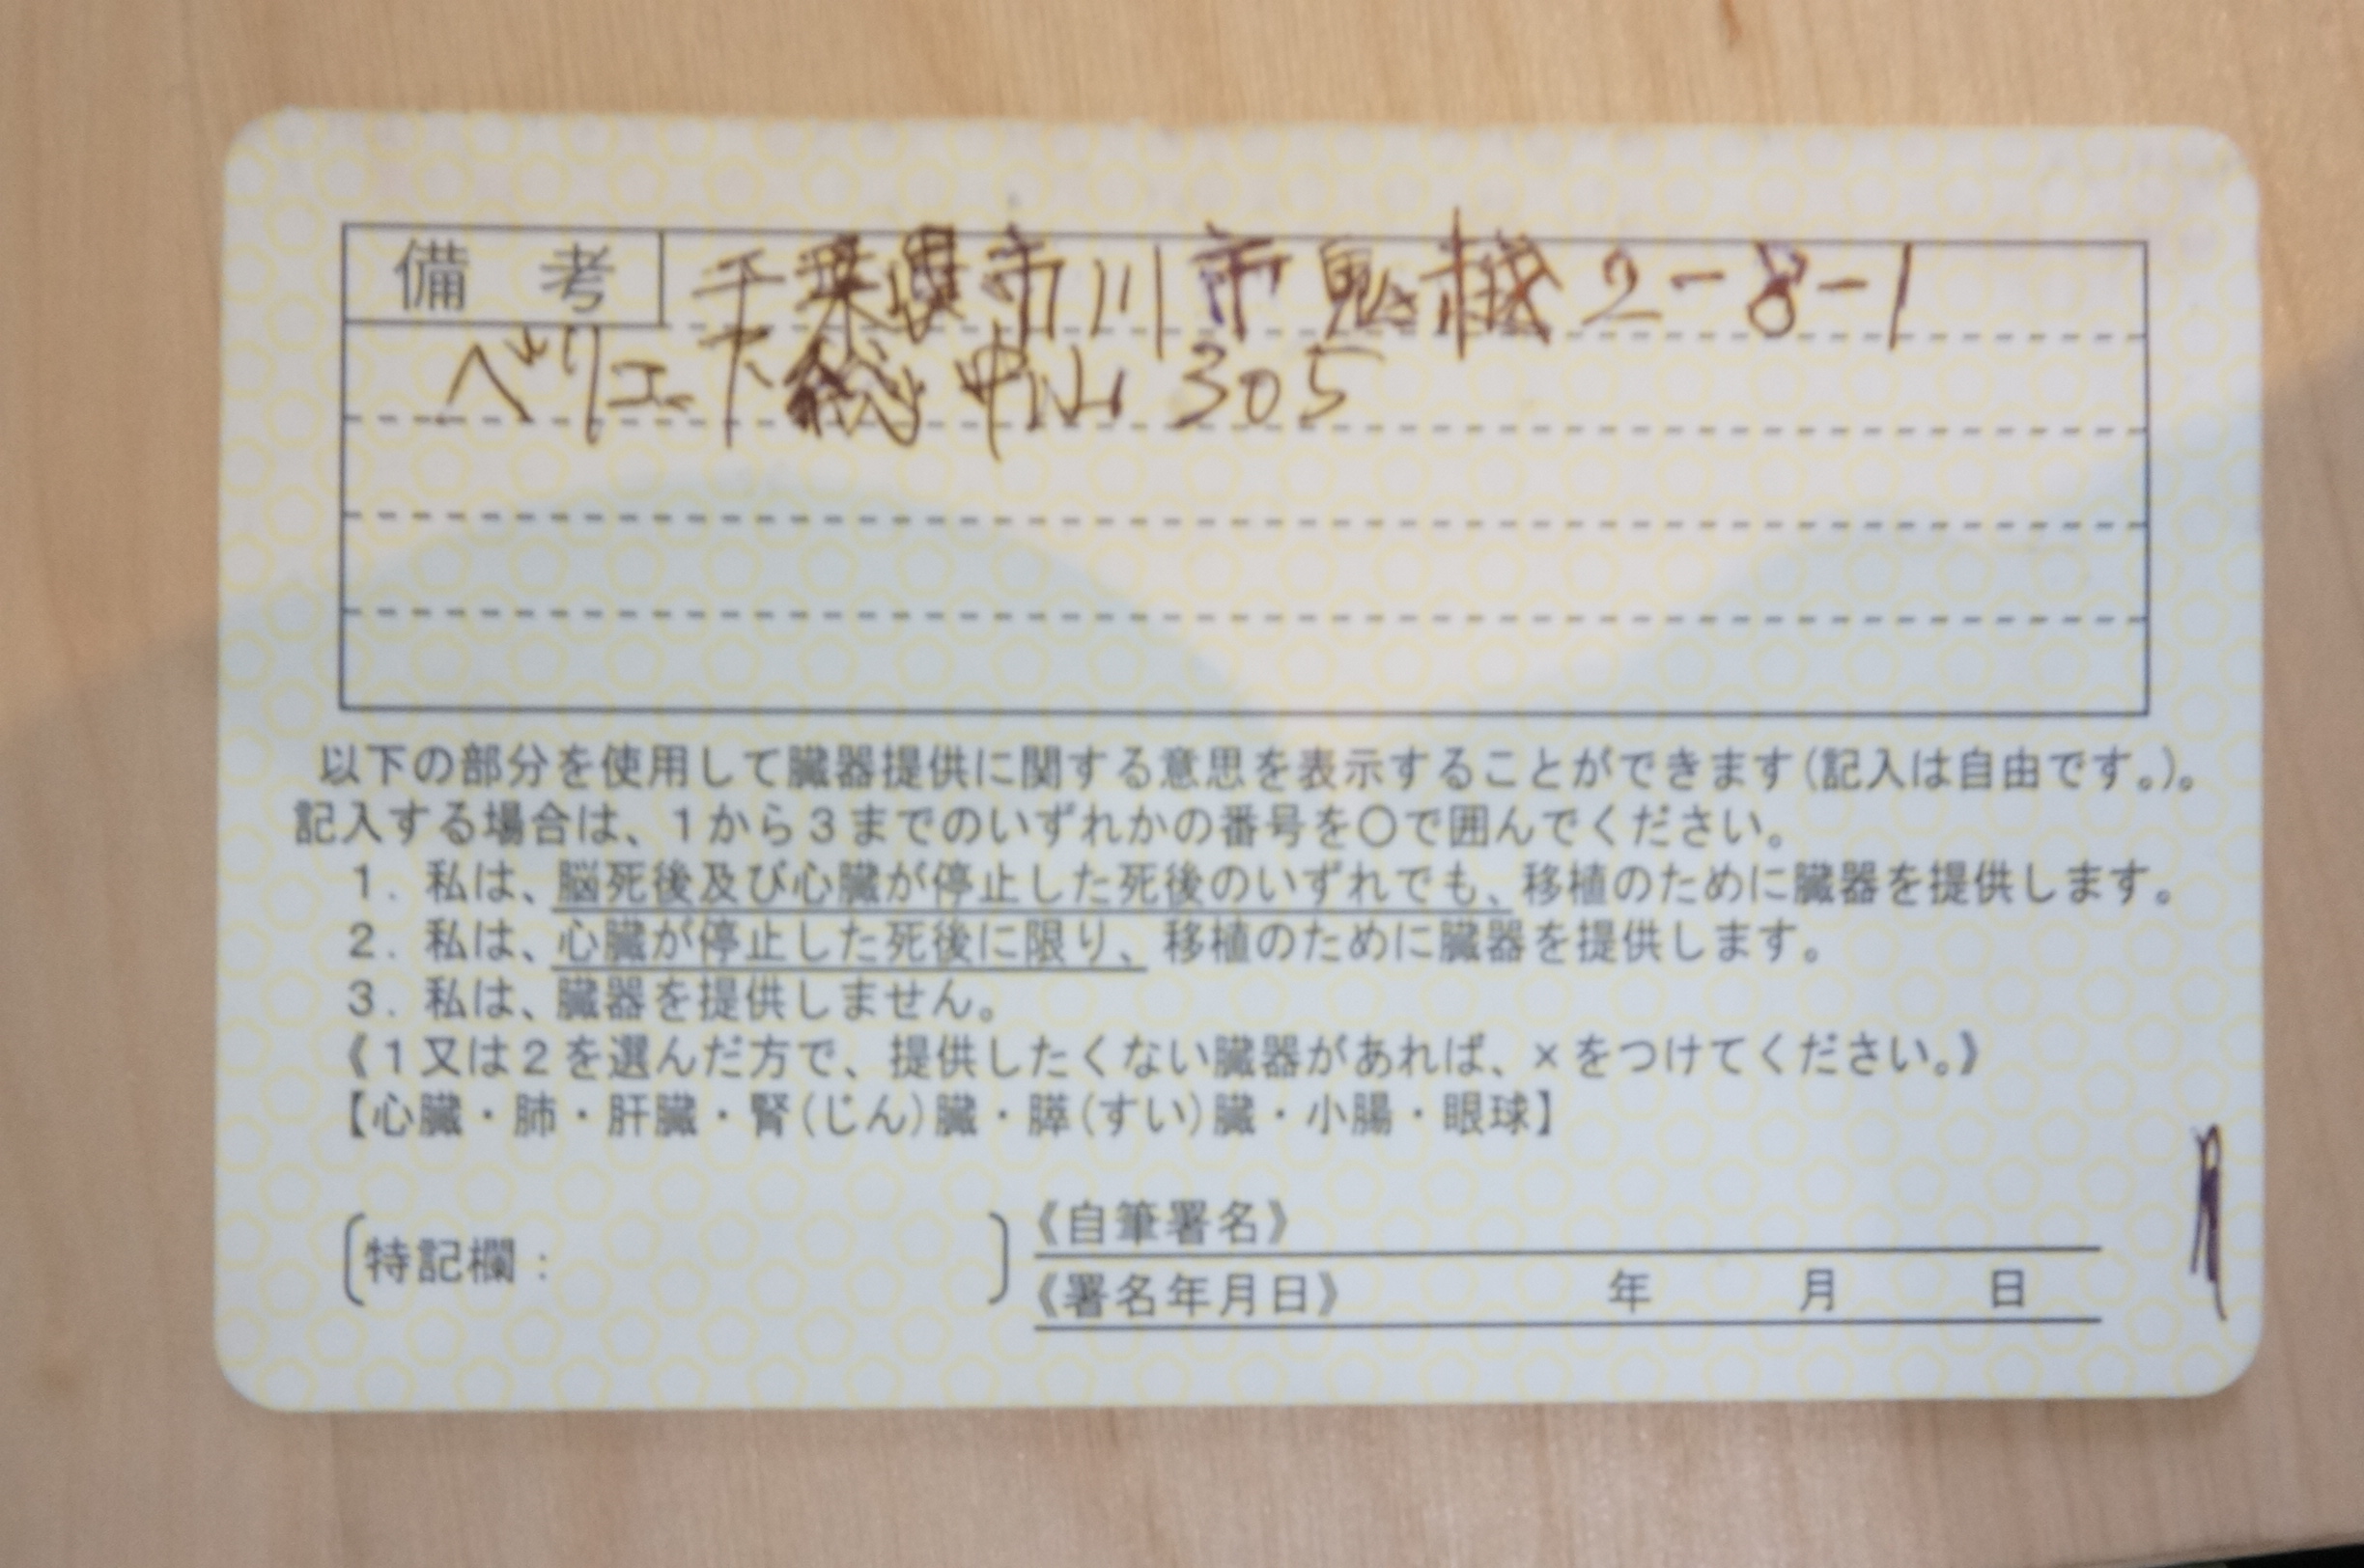 備考 千葉県市川市鬼越2-8-1
ベリエ下総中山 305
以下の部分を使用して臓器提供に関する意思を表示することができます(記入は自由です。)。
記入する場合は、1から3までのいずれかの番号を〇で囲んでください。
1. 私は、脳死後及び心臓が停止した死後のいずれでも、移植のために臓器を提供します。
2. 私は、心臓が停止した死後に限り、移植のために臓器を提供します。
3. 私は、臓器を提供しません。
《1又は2を選んだ方で、提供したくない臓器があれば、×をつけてください。》
【心臓・肺・肝臓・腎(じん)臓・膵(すい)臓・小腸・眼球】
〔特記欄: 〕
《自筆署名》
《署名年月日》 年 月 日